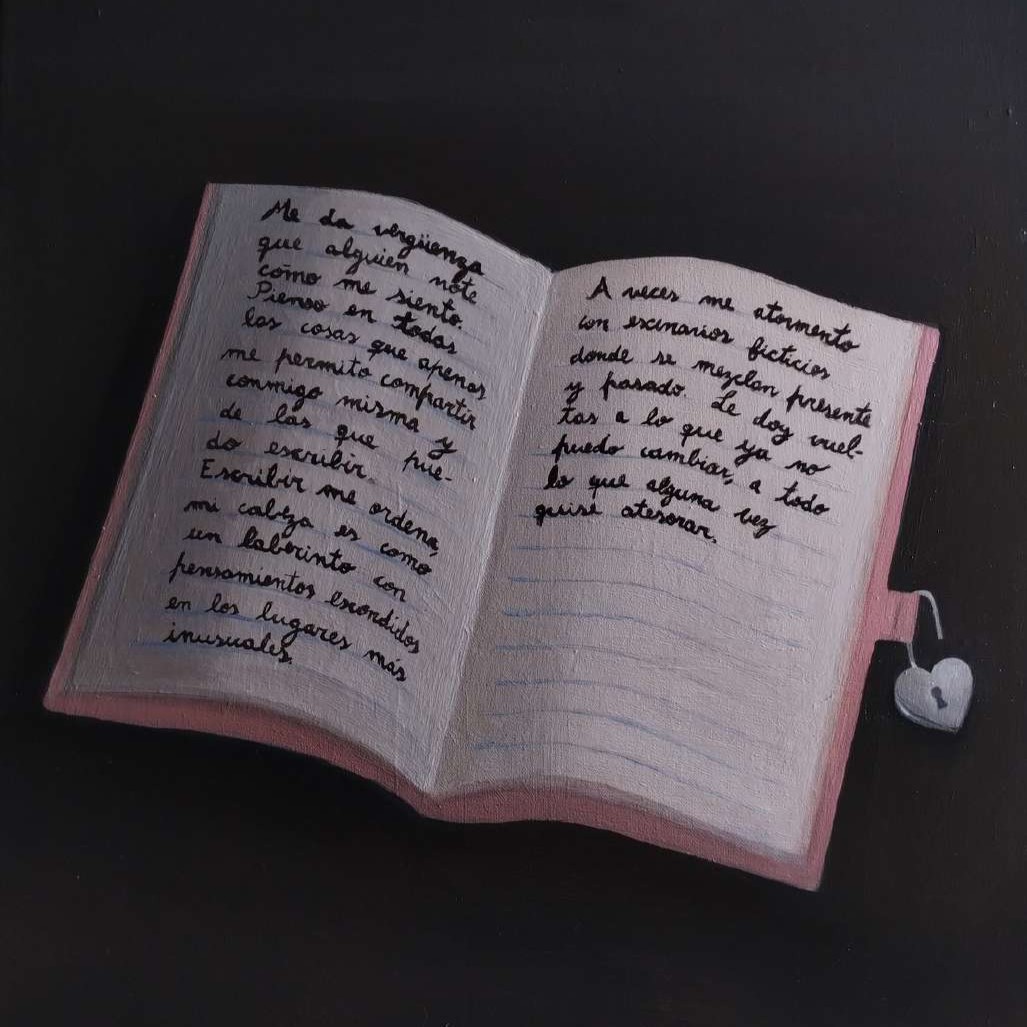 Me da vergüenza
que alguien note
cómo me siento.
Pienso en todas
las cosas que apenas
me permito compartir
conmigo misma y
de las que pue-
do escribir.
Escribir me ordena,
mi cabeza es como
un laberinto con
pensamientos escondidos
en los lugares más
inusuales.
A veces me atormento
con escenarios ficticios
donde se mezclan presente
y pasado. Le doy vuel-
tas a lo que ya no
puedo cambiar, a todo
lo que alguna vez
quise atesorar.